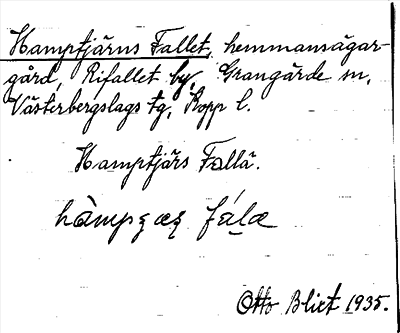 Hamptjärns Fallet, hemmansägar-
gård, Rifallet by, Grangärde sn,
Västerbergslags tg, Kopp l.
Hamptjärs Fallä.
hàmpʂæʂ fála
Otto Blixt 1935.